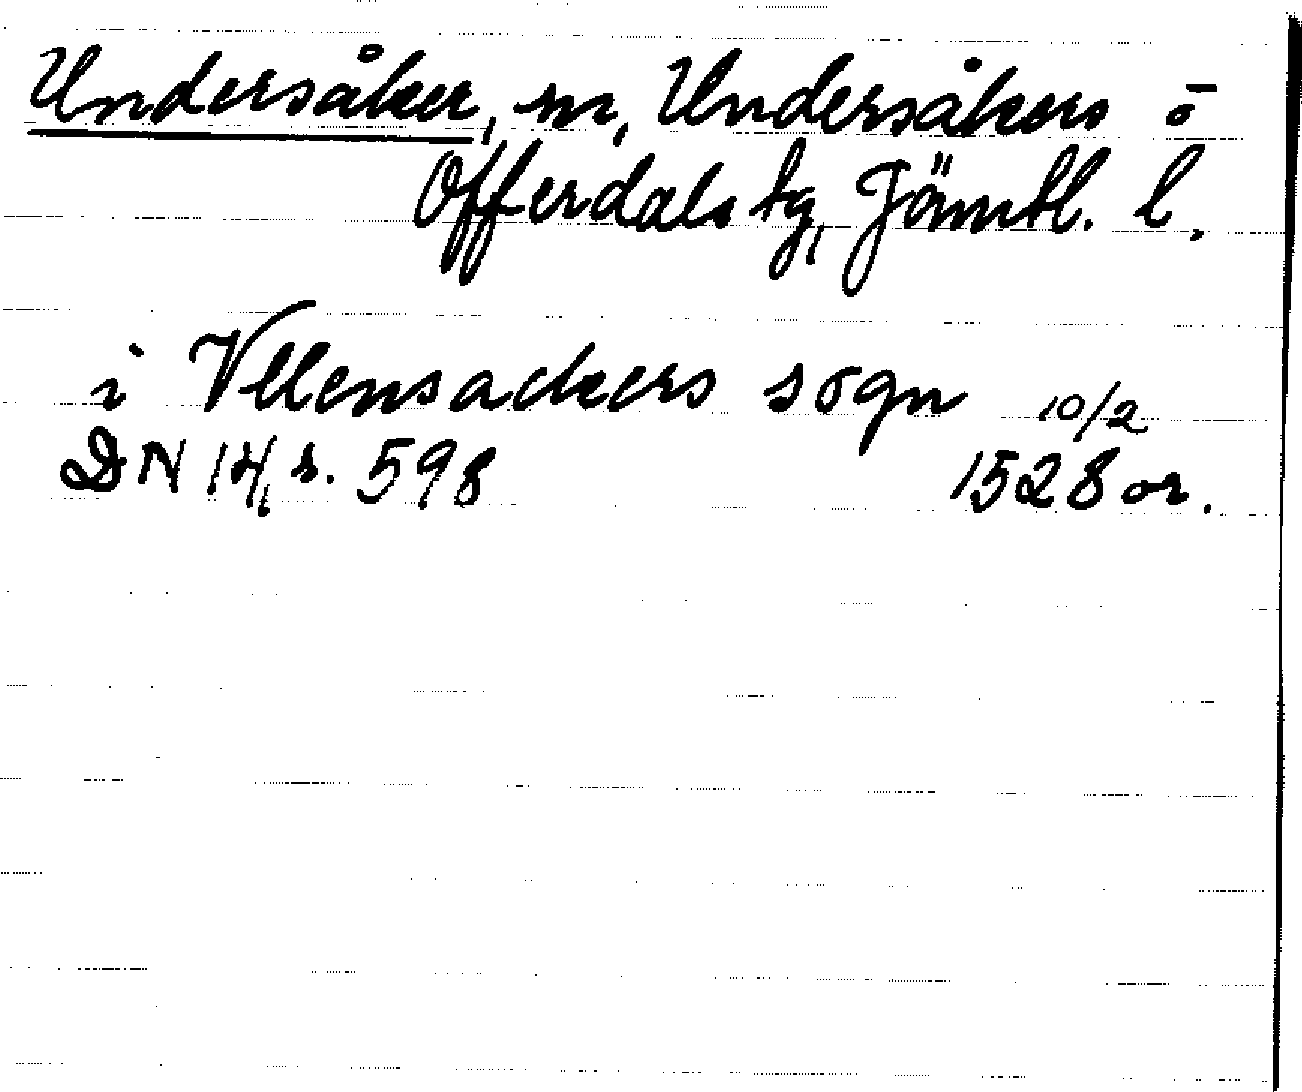 Undersåker, sn, Undersåkers o̅
Offerdals tg, Jämtl. l.
i Vllensackers sogn 10/2
DN 14, s. 598 1528 or.